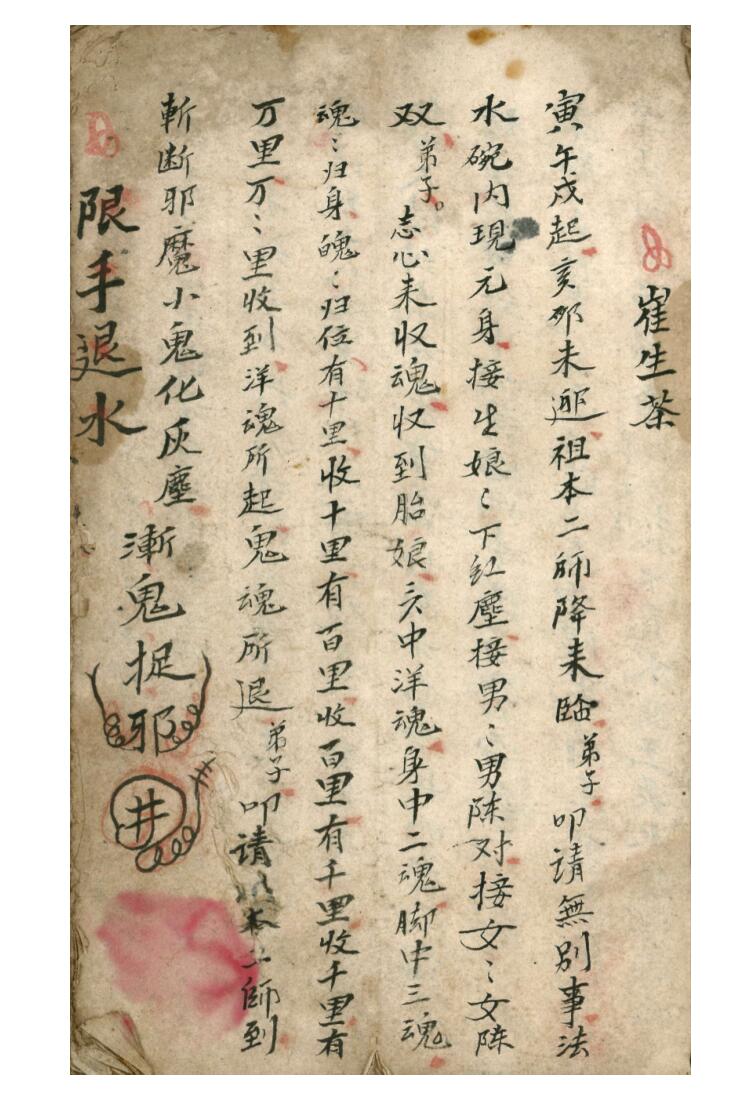 崔生茶
寅午戌起亥卯未迎祖本二師降来臨弟子叩請無別事法
水碗内現元身接生娘〻下紅塵接男〻男陈对接女〻女陈
双弟子志心来收魂收到胎娘头中洋魂身中二魂脚中三魂
魂〻归身魄〻归位有十里收十里有百里收百里有千里收千里有
万里万〻里收到洋魂所起鬼魂所退弟子叩請本二師到
斬断邪魔小鬼化灰塵
漸鬼捉邪
井
限手退水